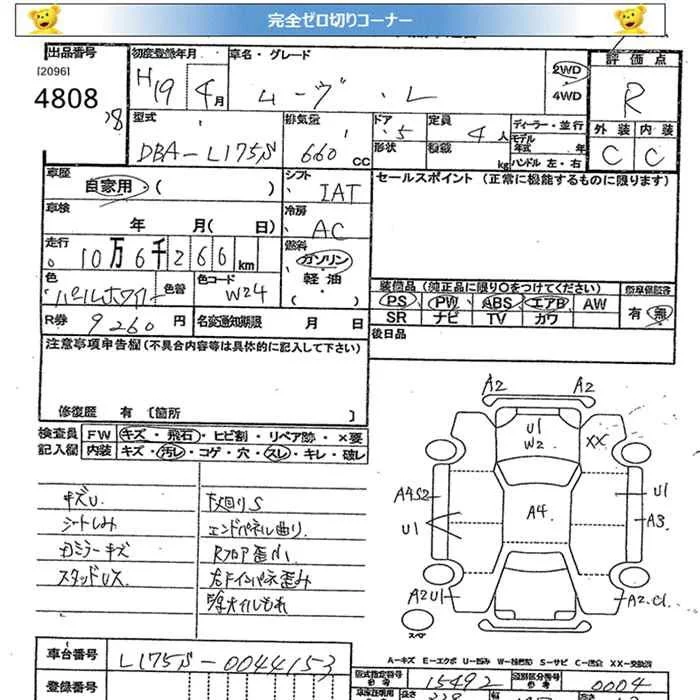 完全ゼロ切りコーナー
出品番号
[2096]
4808
初度登録年月
H19 年 4月
車名・グレード
ムーヴ . L
2WD
4WD
評価点
R
外装 内装
C C
型式
DBA-L175S
排気量
660 cc
ドア
5
形状
定員
4人
積載
kg
ディーラー・並行
モデル年式 年
ハンドル 左・右
車歴
自家用・( )
シフト
IAT
セールスポイント (正常に機能するものに限ります)
車検
年 月( 日)
冷房
AC
走行
10万6千266km
燃料
ガソリン
軽油
( )
色
パールホワイト
色替
色コード
W24
装備品 (純正品に限り○をつけてください)
PS PW ABS エアB AW
SR ナビ TV カワ
有・無
R券 9260円
名変通知期限 月 日
後日品
注意事項申告欄(不具合内容等は具体的に記入して下さい)
修復歴 有 [箇所 ]
検査員
記入欄
FW キズ・飛石・ヒビ割・リペア跡・×要
内装 キズ・汚レ・コゲ・穴・スレ・キレ・破レ
キズU.
シートしみ
スタッドUス
エンドパネル曲り
Rフロア歪
左ドインパネ歪み
オイルもれ
A2 A2
U1
W2
XX
A4S2
U1
A4
U1
A3
A2U1
A2.C1
スペア
A-キズ E-エクボ U-凹み S-サビ C-腐食 XX-交換済
車台番号
L175S-0044153
登録番号
型式指定番号
15492
類別区分番号
0004